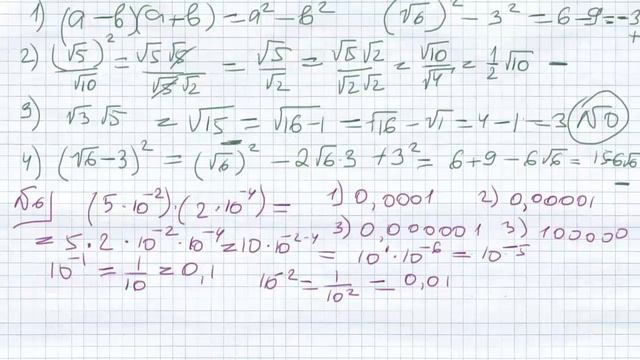 1) (a-b)(a+b) = a² - b² (√6)² - 3² = 6-9 = -3
2) (√5)²/√10 = √5√5/√5√2 = √5/√2 = √5√2/√2√2 = √10/√4 = 1/2 √10 -
3) √3 √5 = √15 = √16-1 = √16 - √1 = 4-1 = 3 NO
4) (√6-3)² = (√6)² - 2√6·3 + 3² = 6+9-6√6 = 156√6
№6 (5·10⁻²)·(2·10⁻⁴) = 1) 0,0001 2) 0,00001
= 5·2·10⁻²·10⁻⁴ = 10·10⁻²⁻⁴ 3) 0,000001 3) 100000
= 10¹·10⁻⁶ = 10⁻⁵
10⁻¹ = 1/10 = 0,1 10⁻² = 1/10² = 0,01